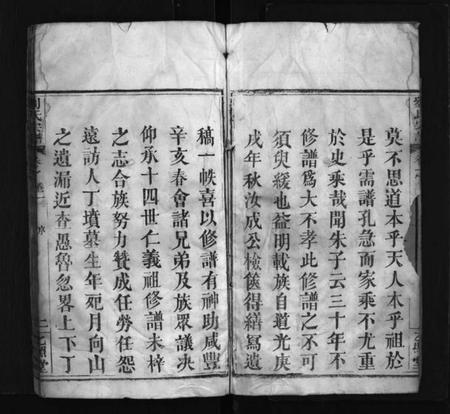 莫不思道本乎天人本乎祖於
是乎需譜孔急而家乘不尤重
於史乘哉聞朱子云三十年不
修譜爲大不孝此修譜之不可
須臾緩也益明載族自道光庚
戌年秋汝成公檢篋得繕寫遺
稿一帙喜以修譜有神助咸豐
辛亥春會諸兄弟及族眾議决
仰承十四世仁義祖修譜未梓
之志合族努力贊成任勞任怨
遠訪人丁墳墓生年死月向山
之遺漏近查愚魯忽畧上下丁